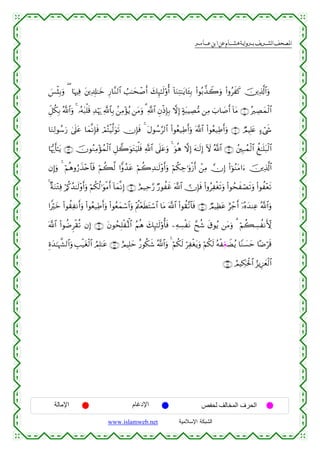 المصحف الشريف برواية هشام عن ابن عامر
وَٱلَّذِينَ كَفَرُوا۟ وَكَذَّبُوا۟ بِـَٔايَـٰتِنَآ أُو۟لَـٰٓئِكَ أَصْحَـٰبُ ٱلنَّارِ خَـٰلِدِينَ فِيهَا ۖ وَبِئْسَ
ٱلْمَصِيرُ ۝ مَآ أَصَابَ مِن مُّصِيبَةٍ إِلَّا بِإِذْنِ ٱللَّهِ ۗ وَمَن يُؤْمِنۢ بِٱللَّهِ يَهْدِ قَلْبَهُۥ ۚ وَٱللَّهُ بِكُلِّ
شَىْءٍ عَلِيمٌ ۝ وَأَطِيعُوا۟ ٱللَّهَ وَأَطِيعُوا۟ ٱلرَّسُولَ ۚ فَإِن تَوَلَّيْتُمْ فَإِنَّمَا عَلَىٰ رَسُولِنَا
ٱلْبَلَـٰغُ ٱلْمُبِينُ ۝ ٱللَّهُ لَآ إِلَـٰهَ إِلَّا هُوَ ۚ وَعَلَى ٱللَّهِ فَلْيَتَوَكَّلِ ٱلْمُؤْمِنُونَ ۝ يَـٰٓأَيُّهَا
ٱلَّذِينَ ءَامَنُوٓا۟ إِنَّ مِنْ أَزْوَٰجِكُمْ وَأَوْلَـٰدِكُمْ عَدُوًّا لَّكُمْ فَٱحْذَرُوهُمْ ۚ وَإِن
تَعْفُوا۟ وَتَصْفَحُوا۟ وَتَغْفِرُوا۟ فَإِنَّ ٱللَّهَ غَفُورٌ رَّحِيمٌ ۝ إِنَّمَآ أَمْوَٰلُكُمْ وَأَوْلَـٰدُكُمْ فِتْنَةٌ ۚ
وَٱللَّهُ عِندَهُۥٓ أَجْرٌ عَظِيمٌ ۝ فَٱتَّقُوا۟ ٱللَّهَ مَا ٱسْتَطَعْتُمْ وَٱسْمَعُوا۟ وَأَطِيعُوا۟ وَأَنفِقُوا۟ خَيْرًا
لِّأَنفُسِكُمْ ۗ وَمَن يُوقَ شُحَّ نَفْسِهِۦ فَأُو۟لَـٰٓئِكَ هُمُ ٱلْمُفْلِحُونَ ۝ إِن تُقْرِضُوا۟ ٱللَّهَ
قَرْضًا حَسَنًا يُضَعِّفْهُ لَكُمْ وَيَغْفِرْ لَكُمْ ۚ وَٱللَّهُ شَكُورٌ حَلِيمٌ ۝ عَـٰلِمُ ٱلْغَيْبِ وَٱلشَّهَـٰدَةِ
ٱلْعَزِيزُ ٱلْحَكِيمُ ۝
الحرف المخالف لحفص الإدغام الإمالة
الشبكة الإسلامية www.islamweb.net